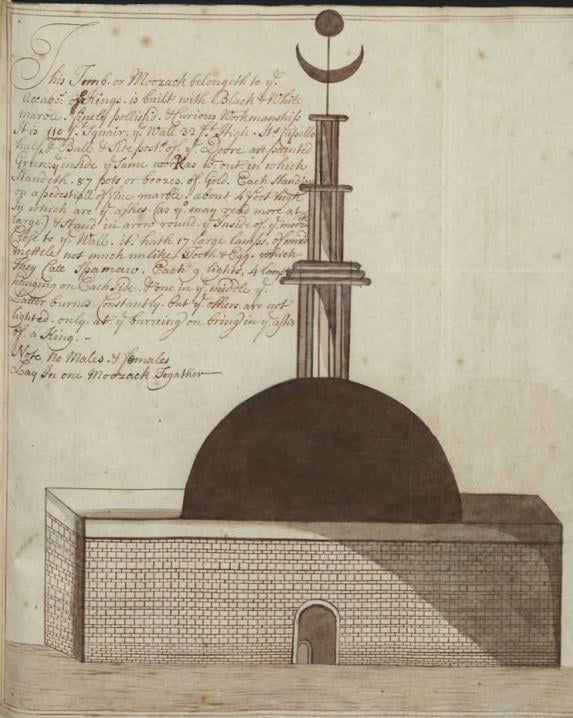 This Tomb. or Moozack belongeth to yͤ
Accabo: of Kings. is built with Black & White
marble. finely pollishd. & Curious Workmanship
It is 110 fᵗ. Squair. yͤ Wall 32 fᵗ. High. Itˢ Cupello
half yͤ Ball & Side postˢ of yͤ Doore are painted
Green. yͤ inside yͤ Same work as wᵗ out. in which
Standeth. 87 pots or boozos. of Gold. Each Standing
on a pedestill of fine marble. about 4 foot high
In which are yͤ ashes. (as yͤ may read more at
large) & Stand in arow round yͤ Inside of yͤ moozᶜᵏ
Close to yͤ Wall. it hath 17 large lamps. of mixd
mettele not much unlike Tooth & Egg. which
They Call Spamaw. Each 9 lights. 4 lamps
hanging on Each Side. & one in yͤ middle yͤ
Latter burns. Constantly. but yͤ others are not
lighted. only. at yͤ bureing on bring in yͤ ashs
of. a King. –
Note No Males. & females
Lay In one Moozack Togather